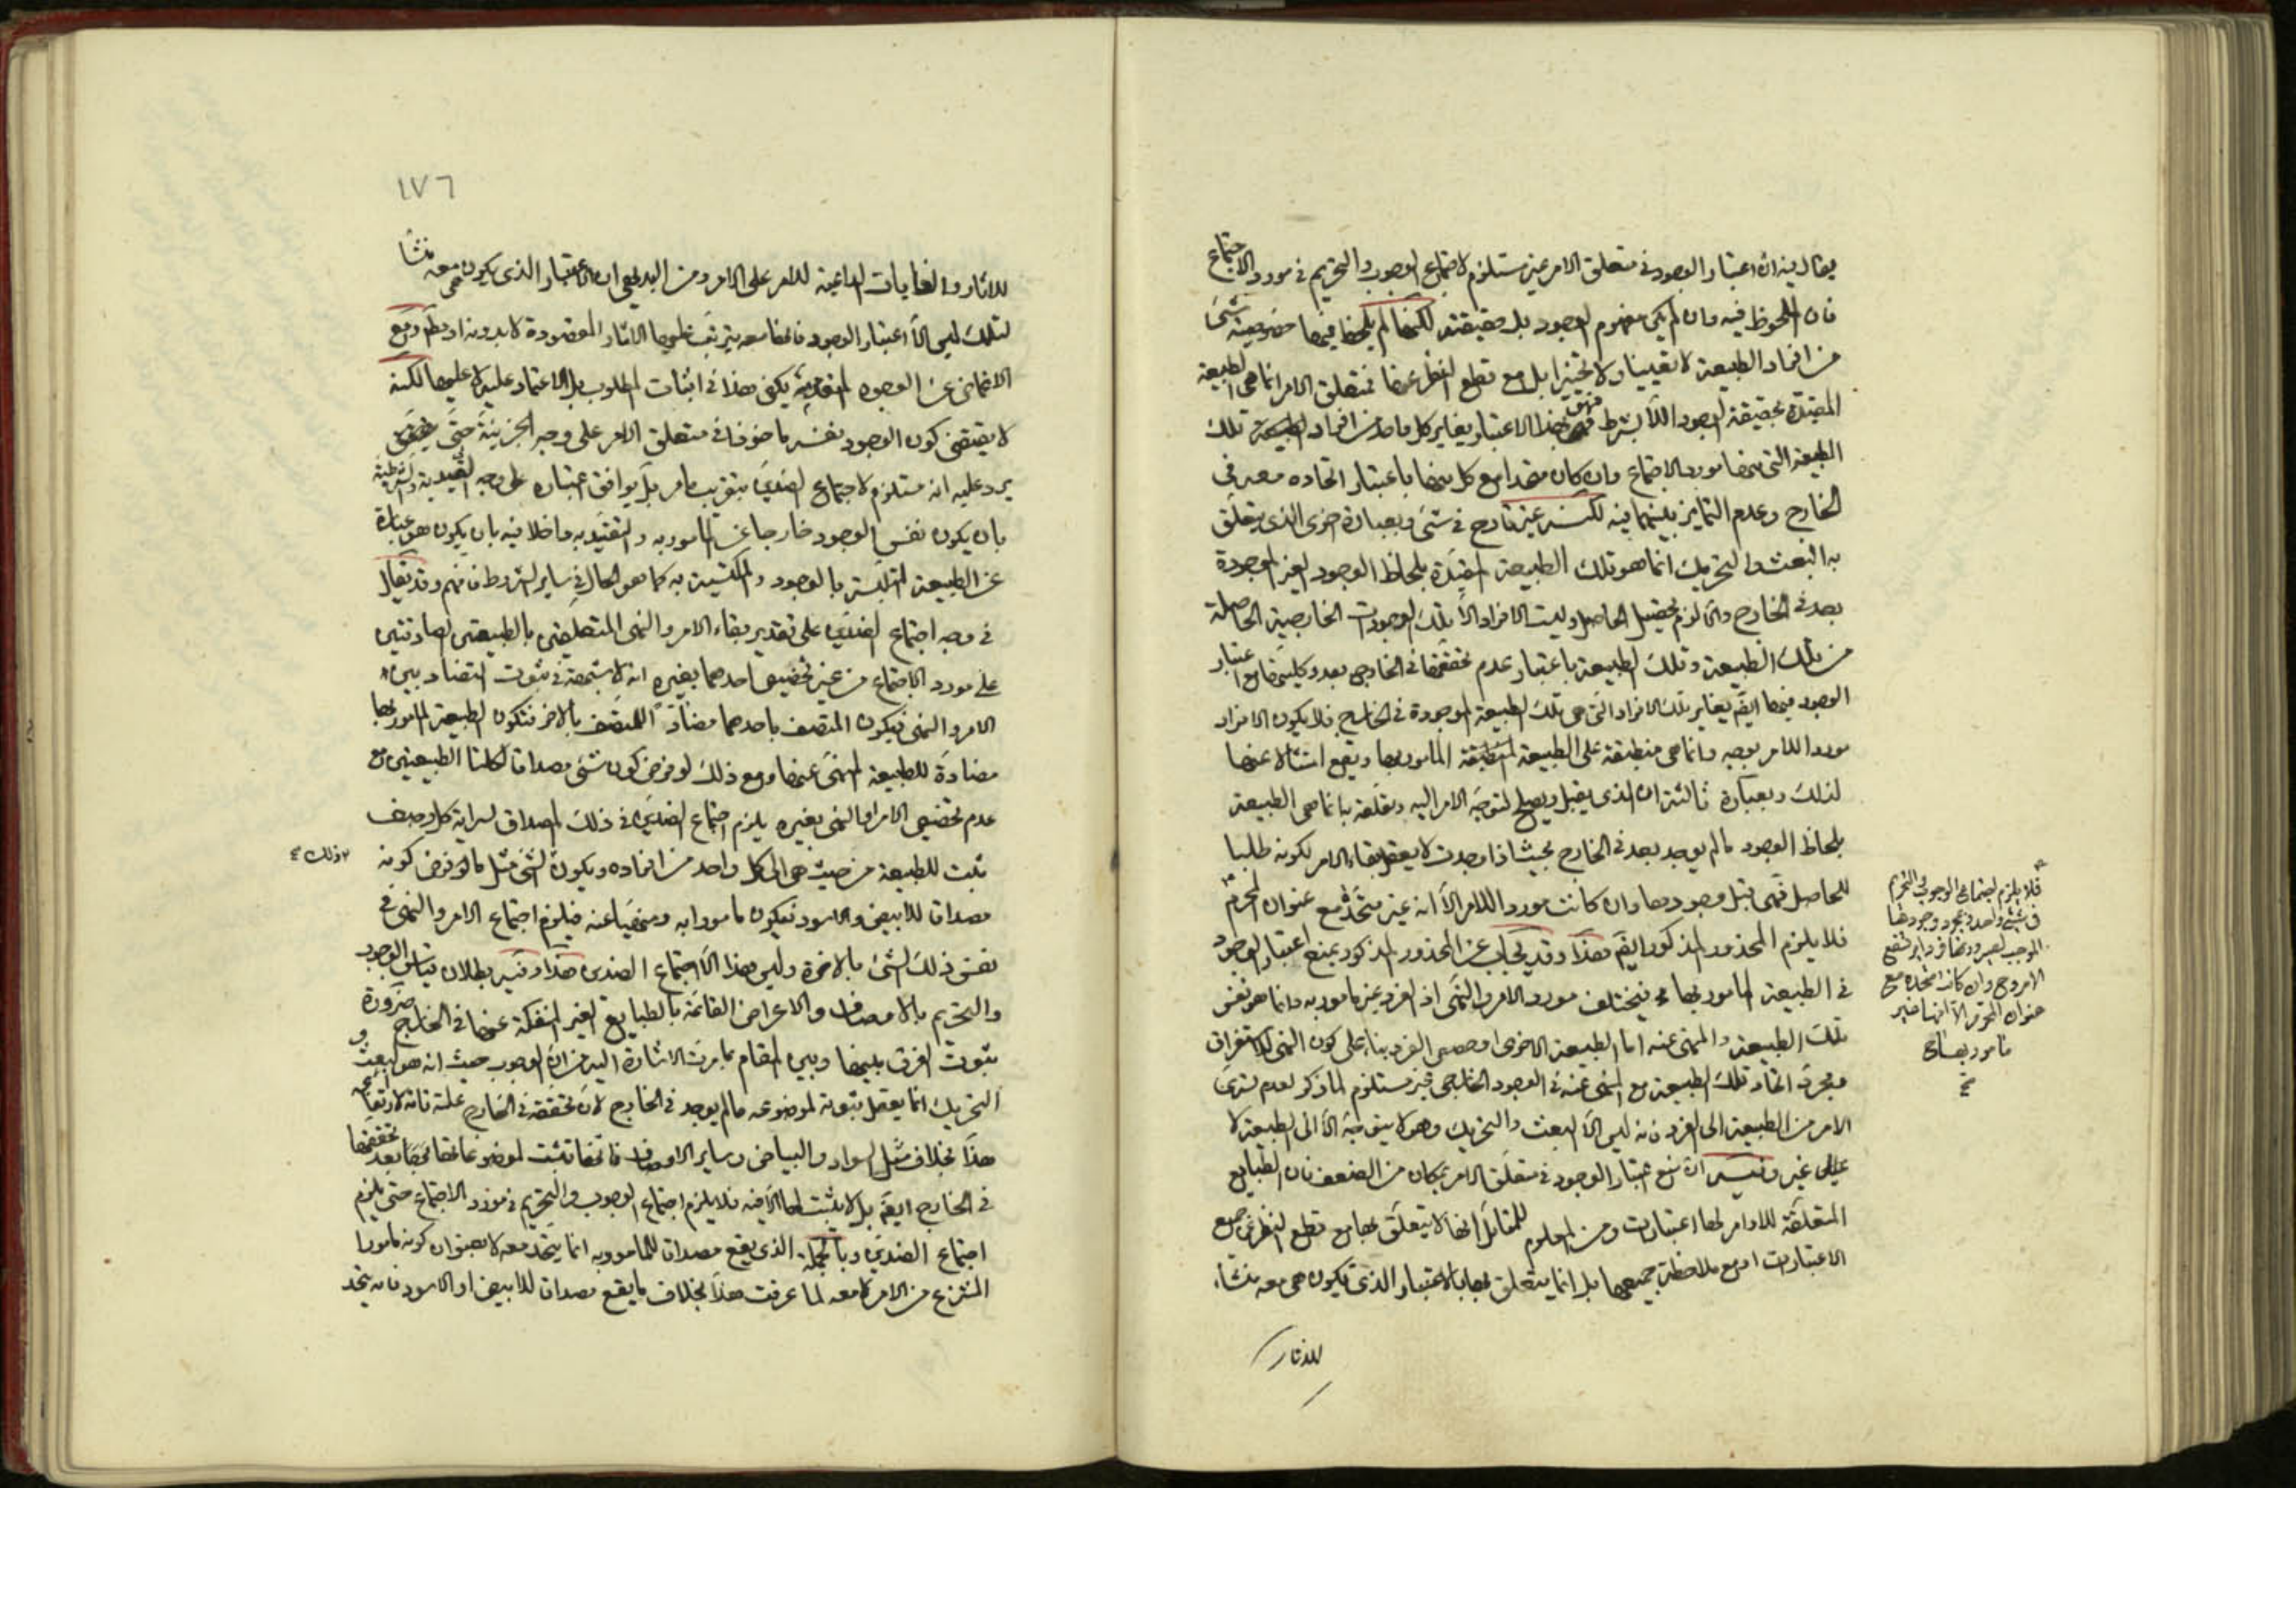 يقال فيه ان اعتبار الوجود في متعلق الامر غير مستلزم لاجتماع الوجوب والتحريم في مورد الاجتماع
فان الملحوظ فيه وان لم يكن مفهوم الوجود بل حقيقته لكنها لم يلحظ فيها خصوصية شئ
من افراد الطبيعة لا تعيينا ولا تخييرا بل مع قطع النظر عنها فمتعلق الامر انما هي الطبيعة
المقيدة بحقيقة الوجود اللا بشرط فهي بهذا الاعتبار يغاير كل واحد من افراد الطبيعة تلك
الطبيعة التي منها مورد الاجتماع وان كان متحدا مع كل منها باعتبار اتحاده معه في
الخارج وعدم التمايز بينهما فيه لكنه غير قادح في شئ وبعبارة اخرى الذي يتعلق
به البعث والتحريك انما هو تلك الطبيعة المقيدة بلحاظ الوجود الغير الموجودة
بعد في الخارج والا لزم تحصيل الحاصل وليت الافراد الا تلك الوجودات الخارجية الحاصلة
من تلك الطبيعة وتلك الطبيعة باعتبار عدم تحققها في الخارج بعد وكليتها مع اعتبار
الوجود فيها ايضم يغاير تلك الافراد التي هي تلك الطبيعة الموجودة في الخارج فلا يكون الافراد
موردا للامر بوجه وانما هي منطبقة على الطبيعة المأمور بها ويقع امتثالا عنها
لذلك وبعبارة ثالثة ان الذي يقبل ويصلح لتوجه الامر اليه وتعلقه به انما هي الطبيعة
بلحاظ الوجود ما لم يوجد بعد في الخارج بحيث اذا وجدت لا يعقل بقاء الامر لكونه طلبا
للحاصل فهي قبل وجودها وان كانت موردا للامر الا انه غير متحد مع عنوان المحرم
فلا يلزم المحذور المذكور ايضم هذا وقد يجاب عن المحذور المذكور بمنع اعتبار الوجود
في الطبيعة المأمور بها فيختلف مورد الامر والنهي اذ الفرد غير مأمور به وانما هو نفس
تلك الطبيعة والمنهي عنه اما الطبيعة الاخرى او حصص الفرد بناء على كون النهي للاستغراق
ومجرد اتحاد تلك الطبيعة مع المنهي عنه في الوجود الخارجي غير مستلزم لما ذكر لعدم تسري
الامر من الطبيعة الى الفرد فانه ليس الا البعث والتحريك وهو لا يتوجه الا الى الطبيعة لا
غير وفيه ان منع اعتبار الوجود في متعلق الامر بمكان من الضعف فان الطبايع
المتعلقة للاوامر لها اعتبارات ومن المعلوم للمتأمل انها لا يتعلق بها مع قطع النظر عن جميع
الاعتبارات او مع ملاحظة جميعها بل انما يتعلق بها بالاعتبار الذي يكون هي معه منشاء
للاثار
فلا يلزم اجتماع الوجوب والتحريم
في شئ واحد
وان كانت متحدة مع
عنوان المحرم الا انها غير
مأمور بها
١٧٦
للاثار والغايات الداعية للامر على الامر ومن البديهي ان الاعتبار الذي يكون هي معه منشأ
لتلك ليس الا اعتبار الوجود فانها معه يترتب عليها الاثار المقصودة لا بدونه او مطم ومع
الاغماض عن الوجوه المتقدمة يكفي هذا في اثبات المطلوب بل الاعتماد عليه لا عليها لكنه
لا يقتضي كون الوجود بنفسه مأخوذا في متعلق الامر على وجه الجزئية حتى
يرد عليه انه مستلزم لاجتماع الضدين بتقريب ما مر بل يوافق اعتباره على وجه القيدية والشرطية
بان يكون نفس الوجود خارجا عن المأمور به والتقيد به داخلا فيه بان يكون هو عبارة
عن الطبيعة المتلبسة بالوجود والمكتسية به كما هو الحال في ساير الشروط فافهم وقد يقال
في وجه اجتماع الضدين على تقدير بقاء الامر والنهي المتعلقين بالطبيعتين الصادقتين
على مورد الاجتماع من غير تخصيص احدهما بغيره انه لا شبهة في ثبوت التضاد بين
الامر والنهي فيكون المتصف باحدهما مضادا للمتصف بالاخر فتكون الطبيعة المأمور بها
مضادة للطبيعة المنهي عنها ومع ذلك لو فرض كون شئ مصداقا لكلتا الطبيعتين مع
عدم تخصيص الامر او النهي بغيره يلزم اجتماع الضدين في ذلك المصداق لسراية كل وصف
ثبت للطبيعة من حيث هي الى كل واحد من افراده ويكون الشئ مثل ما لو فرض كونه
وذلك
مصداقا للابيض والاسود فيكون مأمورا به ومنهيا عنه فيلزم اجتماع الامر والنهي في
نفس ذلك الشئ بالاخرة وليس هذا الا اجتماع الضدين هذا وفيه بطلان قياس الوجوب
والتحريم بالاوصاف والاعراض القائمة بالطبايع الغير المنفكة عنها في الخارج ضرورة
ثبوت الفرق بينها وبين المقام بما مرت الاشارة اليه من ان الوجوب حيث انه هو البعث و
التحريك انما يعقل ثبوته لموضوعه ما لم يوجد في الخارج لان تحققه في الخارج علة تامة لارتفاعه
هذا بخلاف مثل السواد والبياض وساير الاوصاف فانها تثبت لموضوعاتها بعد تحققها
في الخارج ايضم بل لا يثبت لها الا فيه فلا يلزم اجتماع الوجوب والتحريم في مورد الاجتماع حتى يلزم
اجتماع الضدين وبالجملة الذي يقع مصداقا للمأمور به انما يتحد معه لا بعنوان كونه مأمورا
المنتزع من الامر لا معه لما عرفت هذا بخلاف ما يقع مصداقا للابيض او الاسود فانه يتحد